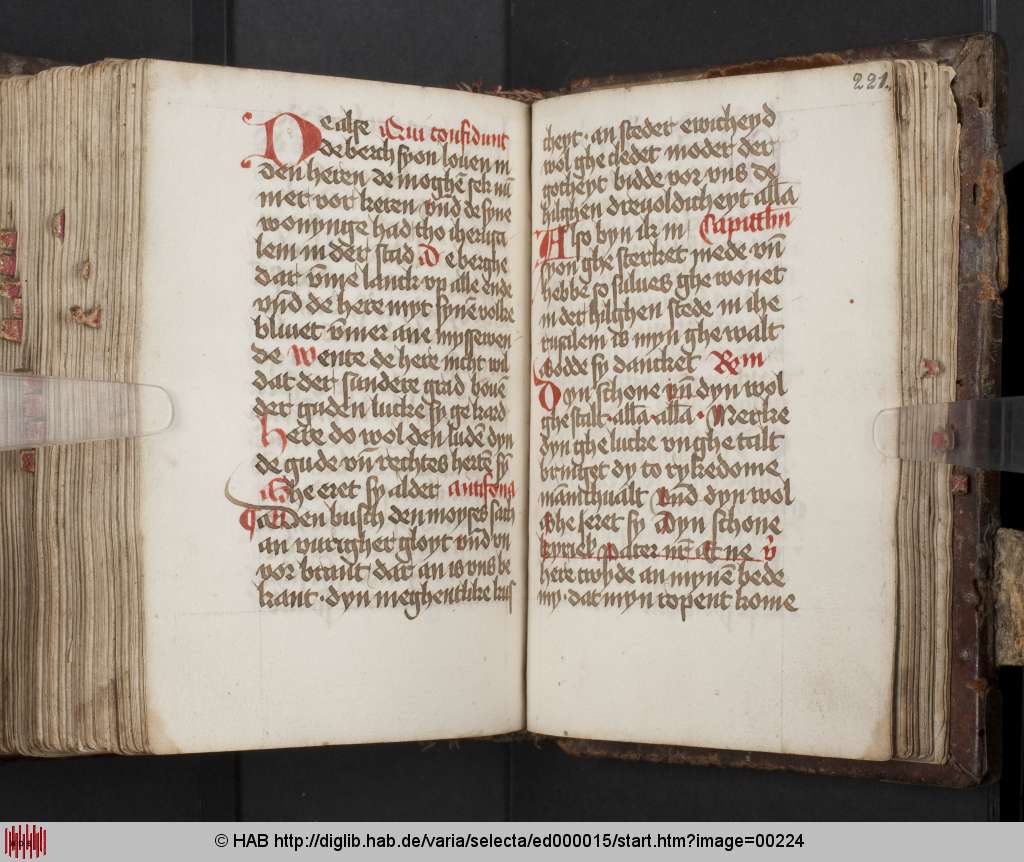 De alse Qui confidunt
de berch syon louen in
den heren de moghē sek nū
mer vor keren vnd de syne
wonynge had tho iherusa
lem in der stad De berghe
dat vm̄e lanck vp alle ende
vn̄d de here myt synē volke
bliuet vmer ane myssewen
de Wente de here nicht wil
dat der sundere grad bouē
der guden lucke sy ge kard
Here do wol den ludē dyn
de gude vn̄ rechtes hertē sy
Ghe eret sy alder Antifona
den busch den moyses sach
an vurigher gloyt vn̄d vn
vor brāt dat an is vns be
kant · dyn meghentlike kus
221.
cheyt · an steder ewicheyd
wol ghe cledet moder der
gotheyt bidde vor vns de
hilghen dreuoldicheyt allā
Also byn ik in Capittlm̄
syon ghe sterket mede vn̄
hebbe so sulues ghe wonet
in der hilghen stede in ihe
rusalem is myn ghe walt
Godde sy dancket Rem
Dyn schone vn̄ dyn wol
ghe stalt · allā · allā · Mercke
dyn ghe lucke vn ghe talt
bruuget dy to rykedome
mānichualt Vnd dyn wol
Ghe Eeret sy Dyn schone
kyriel' Pater nr̄ Et ne v̓
here twyde an mynē bede
my · dat myn ropent kome
© HAB http://diglib.hab.de/varia/selecta/ed000015/start.htm?image=00224